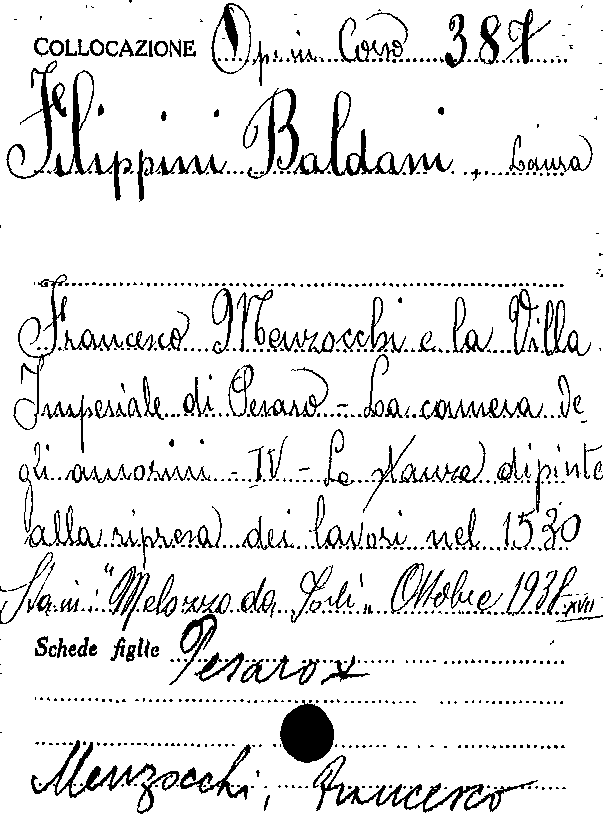 COLLOCAZIONE Op. in Corso 387
Filippini Baldani, Laura
Francesco Menzocchi e la Villa
Imperiale di Pesaro - La camera de-
gli amorini - IV - Le stanze dipinte
alla ripresa dei lavori nel 1530
"Melozzo da Forlì" Ottobre 1938 XVI
Schede figlie Pesaro x
Menzocchi, Francesco